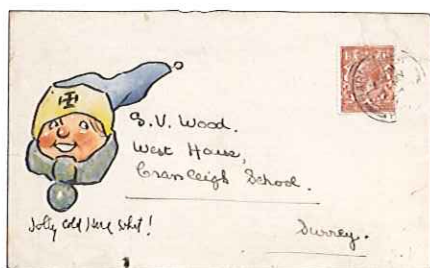 S.V. Wood.
West House,
Cranleigh School.
Surrey.
Jolly cold here what!